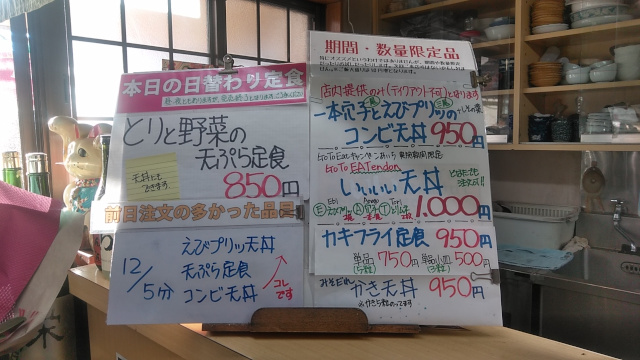 本日の日替わり定食
とりと野菜の
天ぷら定食
天丼とも
できます
850円
前日注文の多かった品
12/5分
えびプリッ天丼
天ぷら定食
コンビ天丼
コレ
です
期間・数量限定品
店内提供のみ(テイクアウト不可)となります
一本穴子とえびプリッの
コンビ天丼 950円
GoToEatキャンペーンあいち
GoTo EATendon
いいいい天丼 1,000円
Ebi Anago Tori
カキフライ定食 950円
単品 750円 単品小皿 500円
(5粒) (3粒)
みそだれ
かき天丼 950円